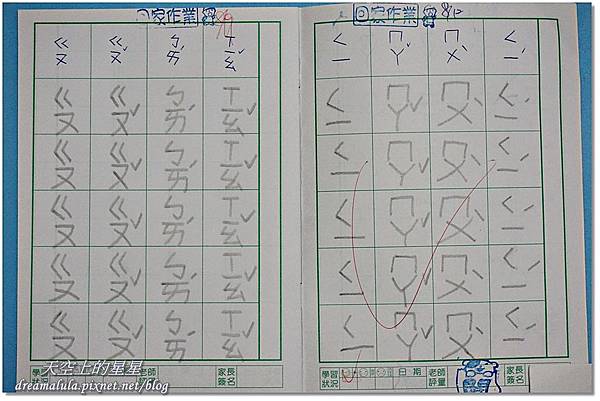 回家作業
ㄍㄡ ㄍㄡˇ ㄅㄞˊ ㄒㄧㄠˇ
ㄍㄡ ㄍㄡˇ ㄅㄞˊ ㄒㄧㄠˇ
ㄍㄡ ㄍㄡˇ ㄅㄞˊ ㄒㄧㄠˇ
ㄍㄡ ㄍㄡˇ ㄅㄞˊ ㄒㄧㄠˇ
ㄍㄡ ㄍㄡˇ ㄅㄞˊ ㄒㄧㄠˇ
ㄍㄡ ㄍㄡˇ ㄅㄞˊ ㄒㄧㄠˇ
學習狀況 老師 家長簽名
回家作業 8/10
ㄑㄧ ㄇㄚˇ ㄇㄨˋ ㄑㄧˊ
ㄑㄧ ㄇㄚˇ ㄇㄨˋ ㄑㄧˊ
ㄑㄧ ㄇㄚˇ ㄇㄨˋ ㄑㄧˊ
ㄑㄧ ㄇㄚˇ ㄇㄨˋ ㄑㄧˊ
ㄑㄧ ㄇㄚˇ ㄇㄨˋ ㄑㄧˊ
ㄑㄧ ㄇㄚˇ ㄇㄨˋ ㄑㄧˊ
學習狀況 日期 老師評量 家長簽名
天空上的星星
dreamalula.pixnet.net/blog